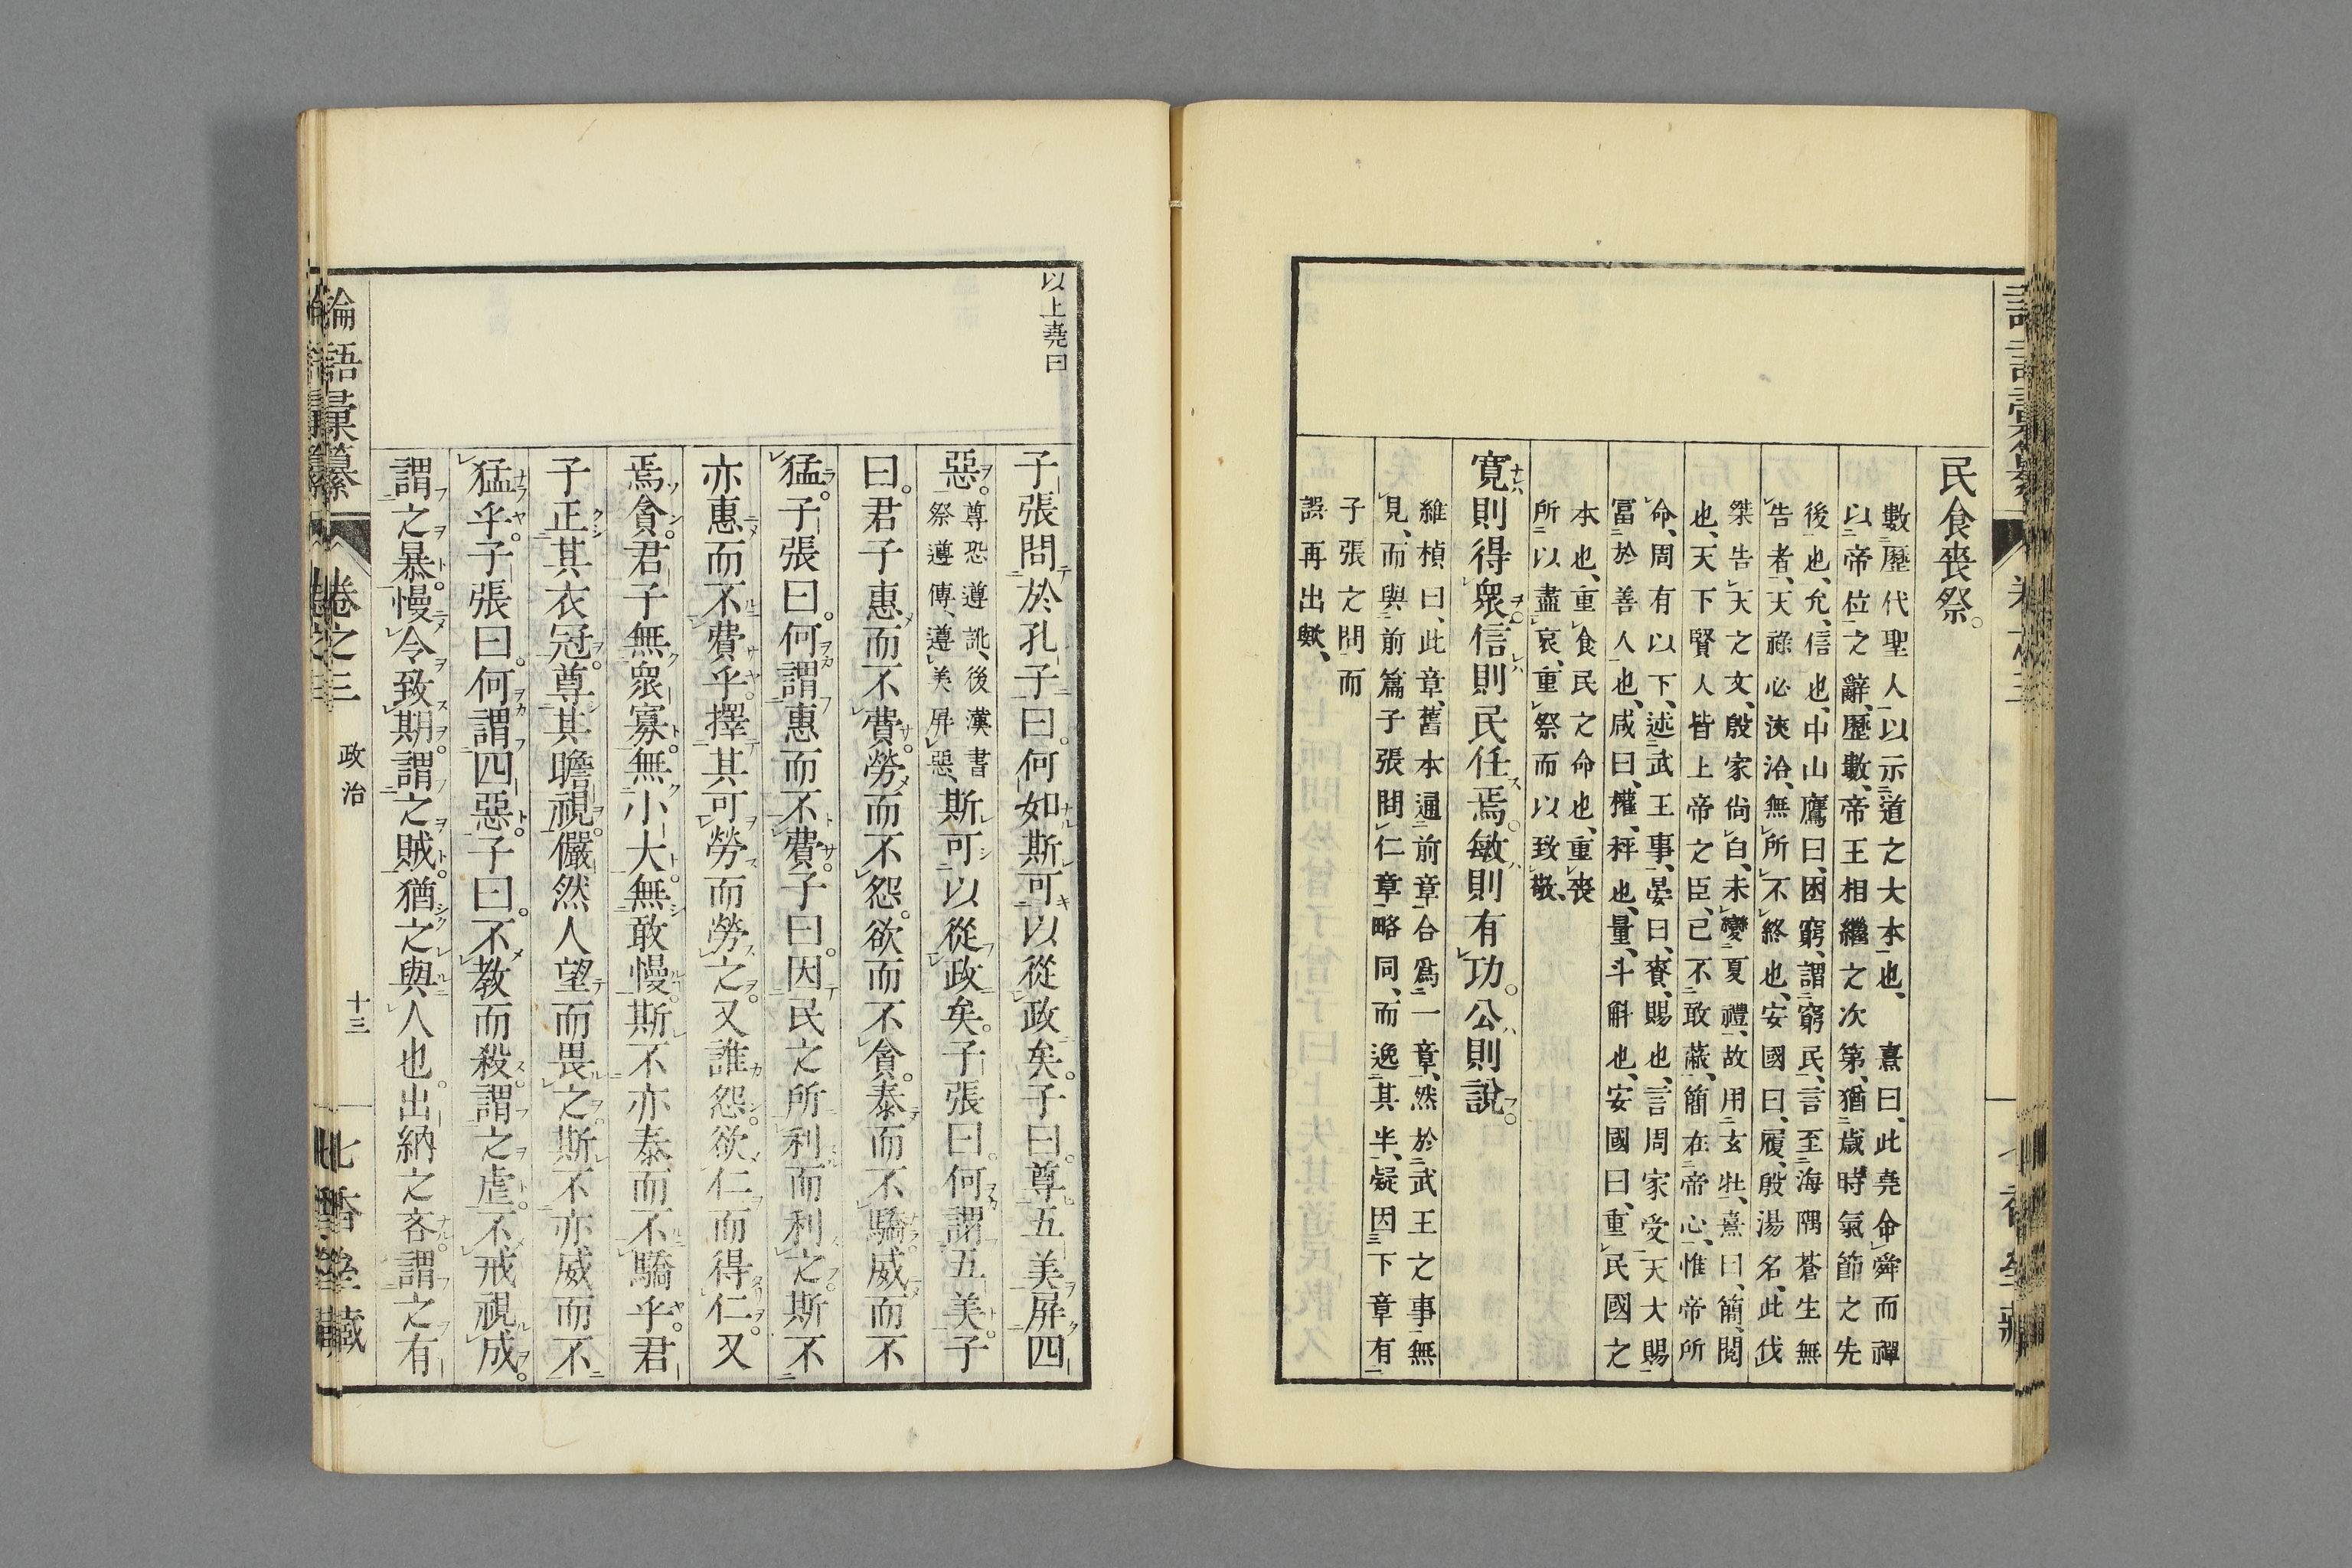 民食喪祭。
數歷代聖人以示道之大本也、熹曰、此堯命舜而禪
以帝位之辭、歷數、帝王相繼之次第、猶歲時氣節之先
後也、允、信也、中山鷹曰、困窮、謂窮民、言至海隅蒼生無
告者、天祿必浹洽、無所不終也、安國曰、履、殷湯名、此伐
桀告天之文、殷家尙白、未變夏禮、故用玄牡、熹曰、簡、閱
也、天下賢人皆上帝之臣、己不敢蔽、簡在帝心、惟帝所
命、周有以下、述武王事、晏曰、賚、賜也、言周家受天大賜
富於善人也、咸曰、權、秤也、量、斗斛也、安國曰、重民國之
本也、重食民之命也、重喪
所以盡哀、重祭而以致敬、
寬則得衆。信則民任焉。敏則有功。公則說。
維楨曰、此章、舊本通前章合爲一章、然於武王之事無
見、而與前篇子張問仁章略同、而逸其半、疑因下章有
子張之問而
誤再出歟、
以上堯曰
子張問於孔子曰。何如斯可以從政矣。子曰。尊五美屏四
惡。尊恐遵訛、後漢書
祭遵傳、遵美屏惡、斯可以從政矣。子張曰。何謂五美。子
曰。君子惠而不費。勞而不怨。欲而不貪。泰而不驕。威而不
猛。子張曰。何謂惠而不費。子曰。因民之所利而利之。斯不
亦惠而不費乎。擇其可勞而勞之。又誰怨。欲仁而得仁。又
焉貪。君子無衆寡。無小大。無敢慢。斯不亦泰而不驕乎。君
子正其衣冠。尊其瞻視。儼然人望而畏之。斯不亦威而不
猛乎。子張曰。何謂四惡。子曰。不教而殺。謂之虐。不戒視成。
謂之暴。慢令致期。謂之賊。猶之與人也。出納之吝。謂之有
論語彙纂
卷之三
政治
十三